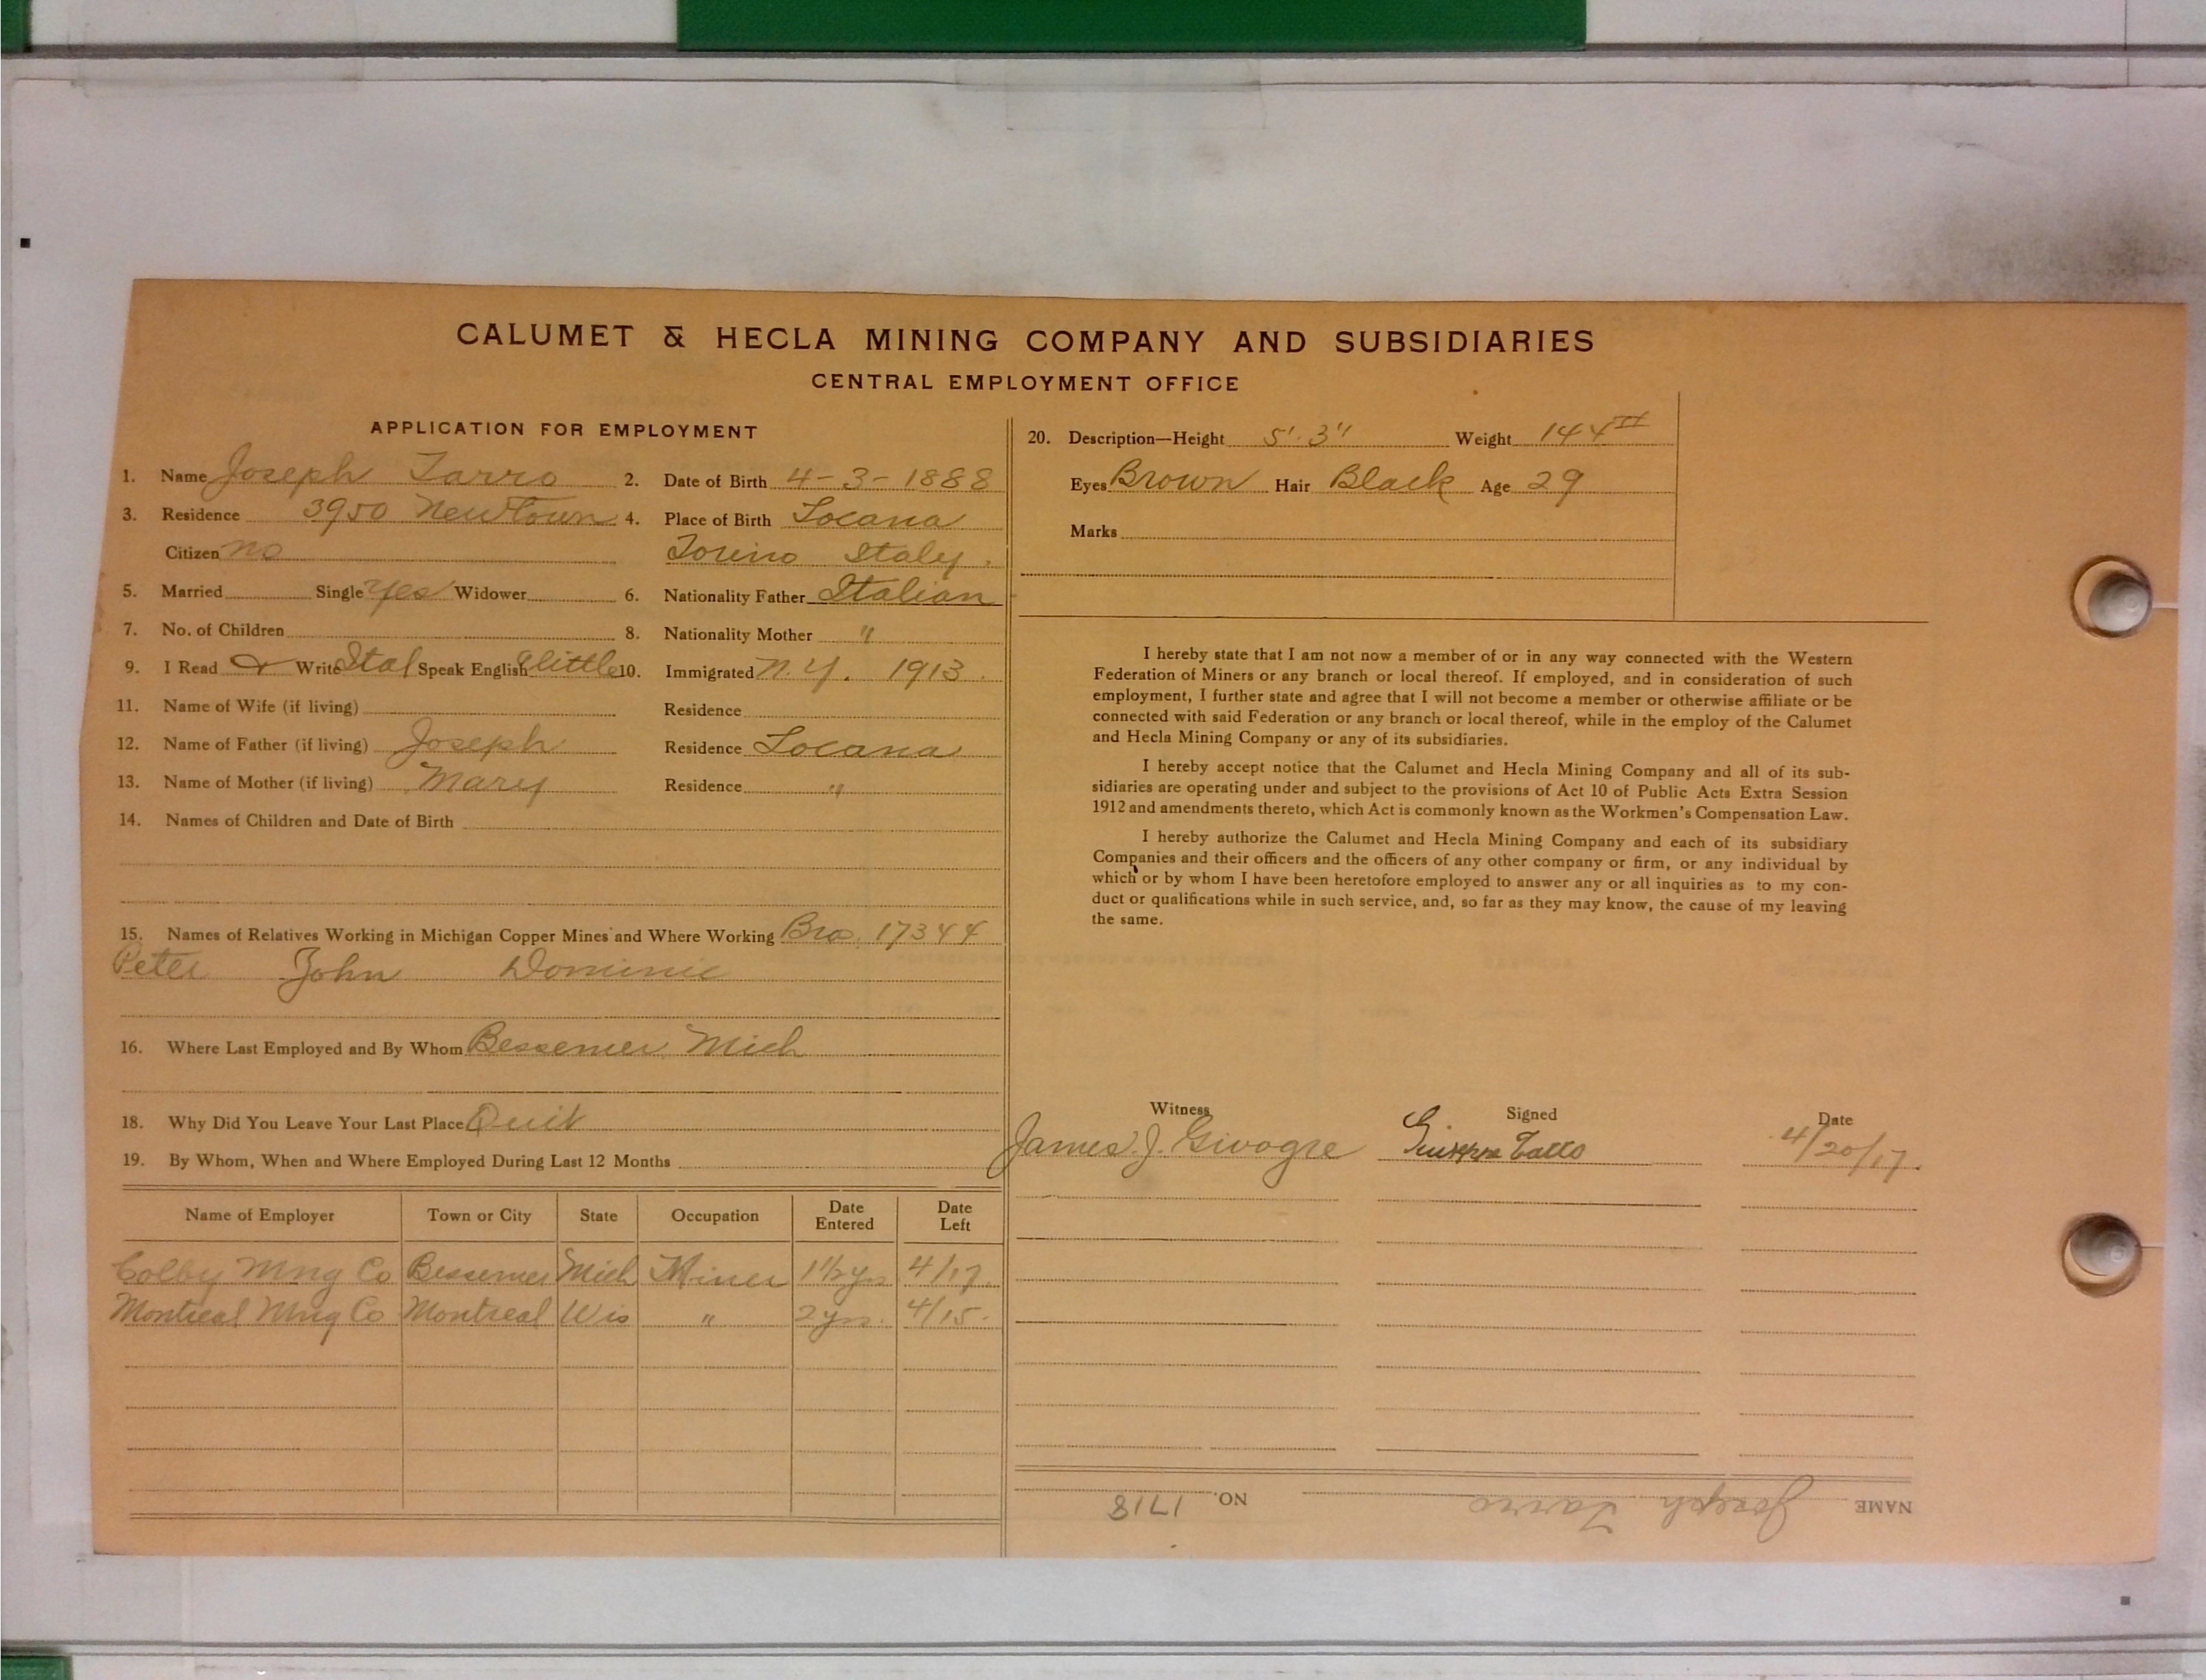 CALUMET & HECLA MINING COMPANY AND SUBSIDIARIES
CENTRAL EMPLOYMENT OFFICE
APPLICATION FOR EMPLOYMENT
1. Name Joseph Tarro 2. Date of Birth 4-3-1888
3. Residence 3950 Newtown 4. Place of Birth Locana
Citizen no Torino Italy.
5. Married Single Yes Widower 6. Nationality Father Italian
7. No. of Children 8. Nationality Mother "
9. I Read & Write Ital Speak English little 10. Immigrated N.Y. 1913.
11. Name of Wife (if living) Residence
12. Name of Father (if living) Joseph Residence Locana
13. Name of Mother (if living) Mary Residence "
14. Names of Children and Date of Birth
15. Names of Relatives Working in Michigan Copper Mines and Where Working Bro. 17344
Peter John Dominic
16. Where Last Employed and By Whom Bessemer Mich
18. Why Did You Leave Your Last Place Quit
19. By Whom, When and Where Employed During Last 12 Months
Name of Employer Town or City State Occupation Date Entered Date Left
Colby Mng Co Bessemer Mich Miner 1½ yrs 4/17.
Montreal Mng Co Montreal Wis " 2 yrs. 4/15.
20. Description—Height 5'.3" Weight 144
Eyes Brown Hair Black Age 29
Marks
I hereby state that I am not now a member of or in any way connected with the Western
Federation of Miners or any branch or local thereof. If employed, and in consideration of such
employment, I further state and agree that I will not become a member or otherwise affiliate or be
connected with said Federation or any branch or local thereof, while in the employ of the Calumet
and Hecla Mining Company or any of its subsidiaries.
I hereby accept notice that the Calumet and Hecla Mining Company and all of its sub-
sidiaries are operating under and subject to the provisions of Act 10 of Public Acts Extra Session
1912 and amendments thereto, which Act is commonly known as the Workmen's Compensation Law.
I hereby authorize the Calumet and Hecla Mining Company and each of its subsidiary
Companies and their officers and the officers of any other company or firm, or any individual by
which or by whom I have been heretofore employed to answer any or all inquiries as to my con-
duct or qualifications while in such service, and, so far as they may know, the cause of my leaving
the same.
Witness Signed Date
James J. 4/20/17.
NAME Joseph Tarro NO. 1718